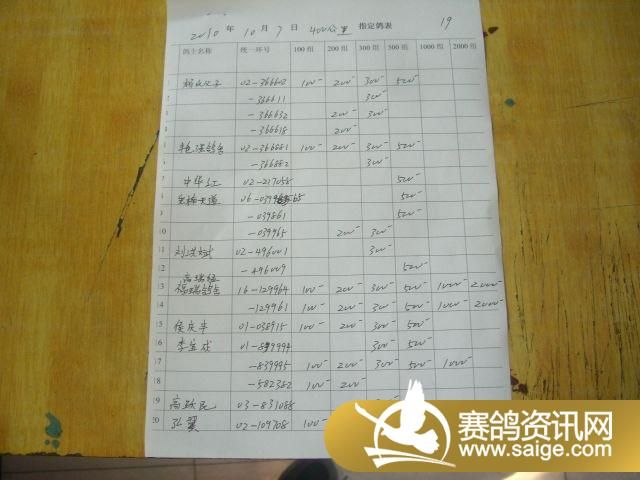 2010 年 10 月 7 日 400公里 指定鸽表 19
鸽主名称 统一环号 100 组 200 组 300 组 500 组 1000 组 2000 组
02-366602 100- 200- 300- 500-
-366611 300-
-366632 200- 300-
-366618 200-
02-366881 100- 200- 300- 500-
-366882 300-
中华红 02-217058 500-
06- 500-
-039861 500-
10 -039965 200- 300-
11 刘洪斌 02-496001 300-
12 高瑞经 -496009 500-
13 福瑞鸽舍 16-129964 100- 200- 300- 500- 1000- 2000-
14 -129961 100- 200- 300- 500- 1000- 2000-
15 侯庆丰 01-038915 100- 200- 300- 500-
16 李宝成 01- 300- 500-
17 -839995 100- 200- 300- 500- 1000-
18 -582382 100- 200-
19 高跃民 03-831088
20 张翼 02-109708 100-
赛鸽资讯网
www.saige.com